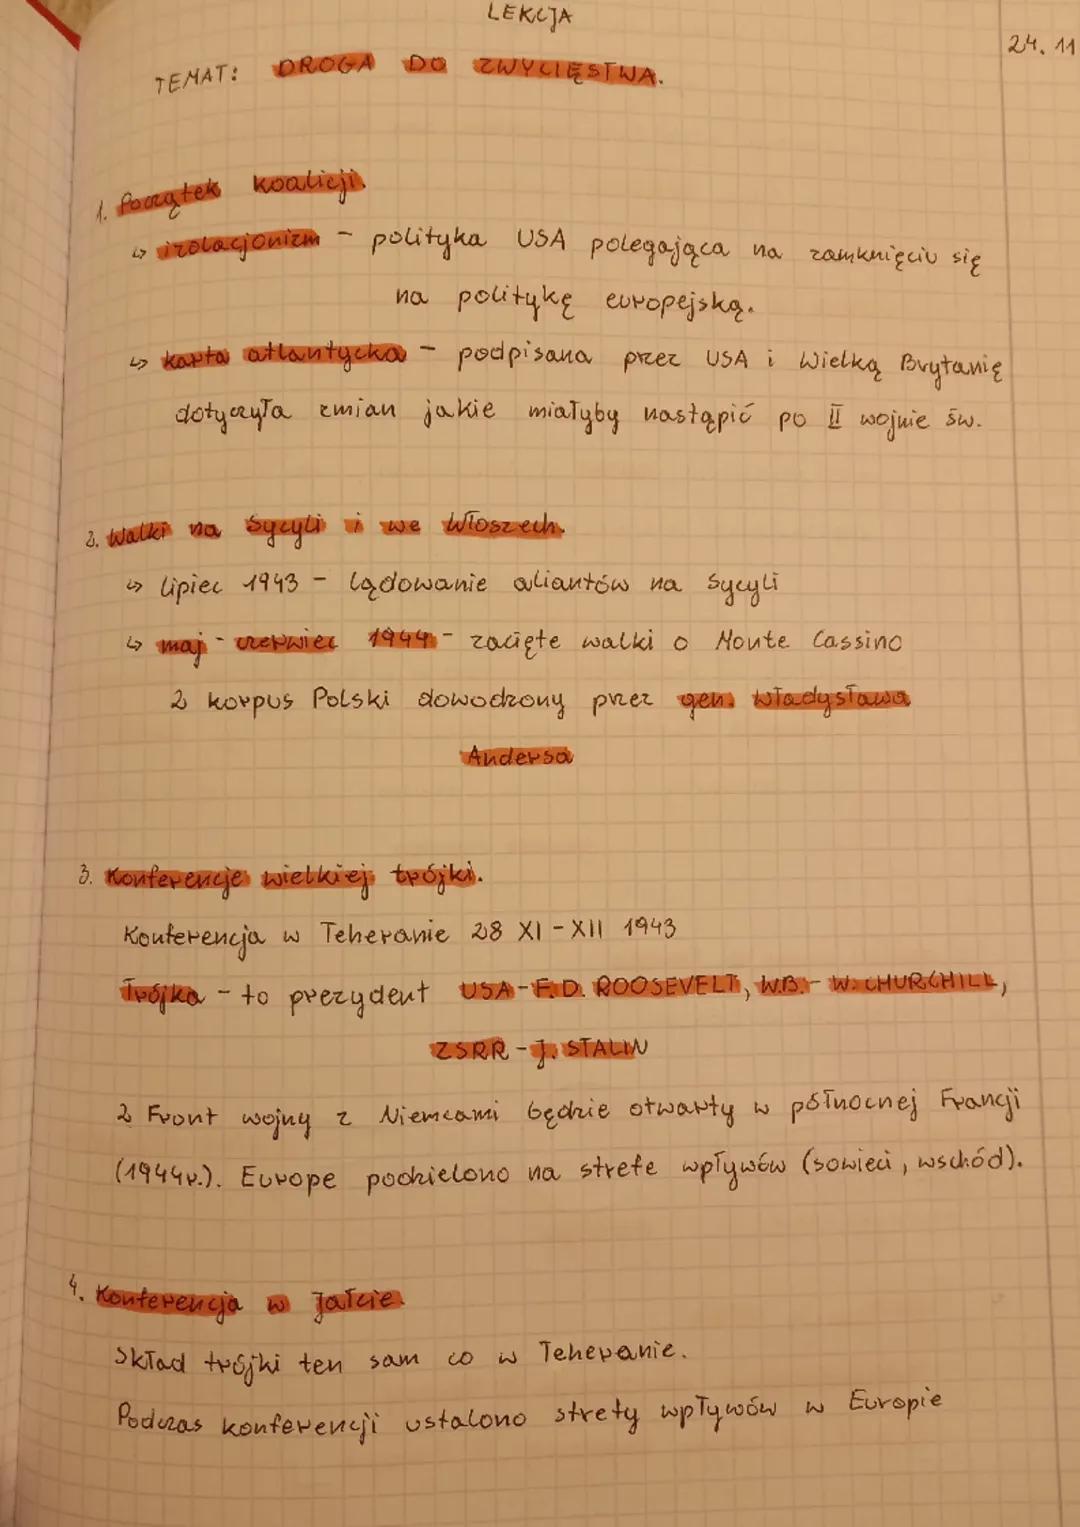 LEKCJA
24.11
TEMAT: DROGA DO ZWYCIĘSTWA.
1. Początek koalicji.
↳ izolacjonizm - polityka USA polegająca na zamknięciu się
na politykę europejską.
↳ karta atlantycka - podpisana przez USA i Wielką Brytanię
dotyczyła zmian jakie miałyby nastąpić po II wojnie św.
2. Walki na Sycyli i we Włoszech.
↳ lipiec 1943 - lądowanie aliantów na Sycyli
↳ maj - czerwiec 1944 - zacięte walki o Monte Cassino
2 korpus Polski dowodzony przez gen. Władysława
Andersa
3. Konferencje wielkiej trójki.
Konferencja w Teheranie 28 XI - XII 1943
Trójka - to prezydent USA - F.D. ROOSEVELT, W.B. - W. CHURCHILL,
ZSRR - J. STALIN
2 Front wojny z Niemcami będzie otwarty w północnej Francji
(1944r.). Europe podzielono na strefe wpływów (sowieci, wschód).
4. Konferencja w Jałcie.
Skład trójki ten sam co w Teheranie.
Podczas konferencji ustalono strefy wpływów w Europie